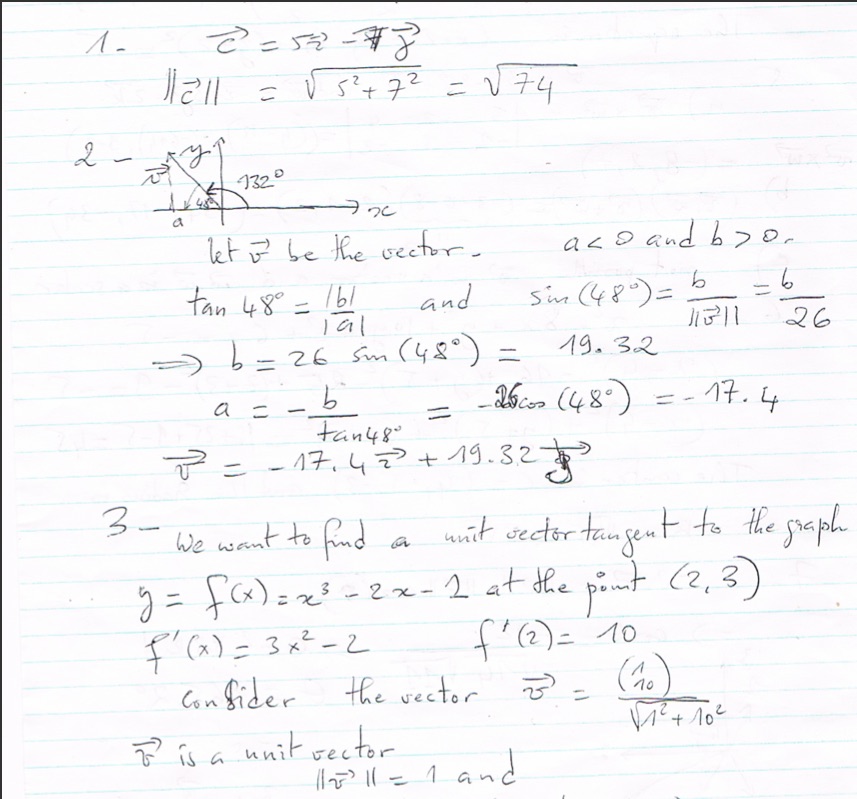 1- c⃗ = 5i⃗ - 7j⃗
||c⃗|| = √(5² + 7²) = √74
2-
v⃗ y 132°
48° x
a
let v⃗ be the vector. a < 0 and b > 0.
tan 48° = |b|/|a| and sin(48°) = b/||v⃗|| = b/26
⟹ b = 26 sin(48°) = 19.32
a = - b/tan48° = -26cos(48°) = -17.4
v⃗ = -17.4i⃗ + 19.32j⃗
3- We want to find a unit vector tangent to the graph
y = f(x) = x³ - 2x - 1 at the point (2,3)
f'(x) = 3x² - 2 f'(2) = 10
Consider the vector v⃗ = (1 10)/√(1² + 10²)
v⃗ is a unit vector
||v⃗|| = 1 and